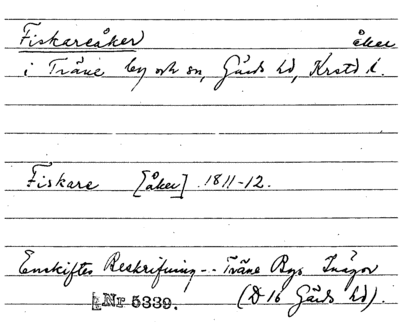 Fiskareåker åker
i Träne by och sn, Gärds hd, Krstd l.
Fiskare [åker] 1811-12.
Enskiftes Beskrifning -- Träne Bys Inägor
Nr 5339. (D 16 Gärds hd).